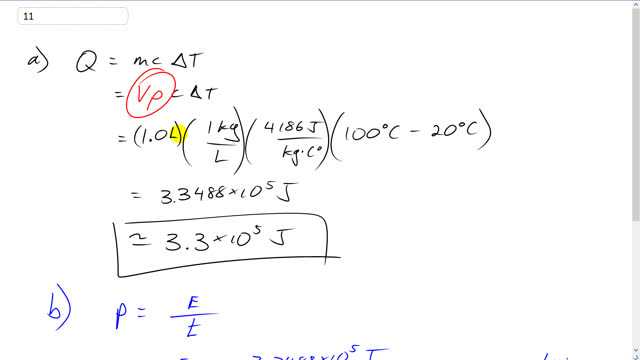 11
a) Q = mc ΔT
= Vρ c ΔT
= (1.0L)(1 kg/L)(4186 J/kg·C°)(100°C − 20°C)
= 3.3488×10⁵ J
≃ 3.3×10⁵ J
b) P = E/t
3.3488×10⁵ J